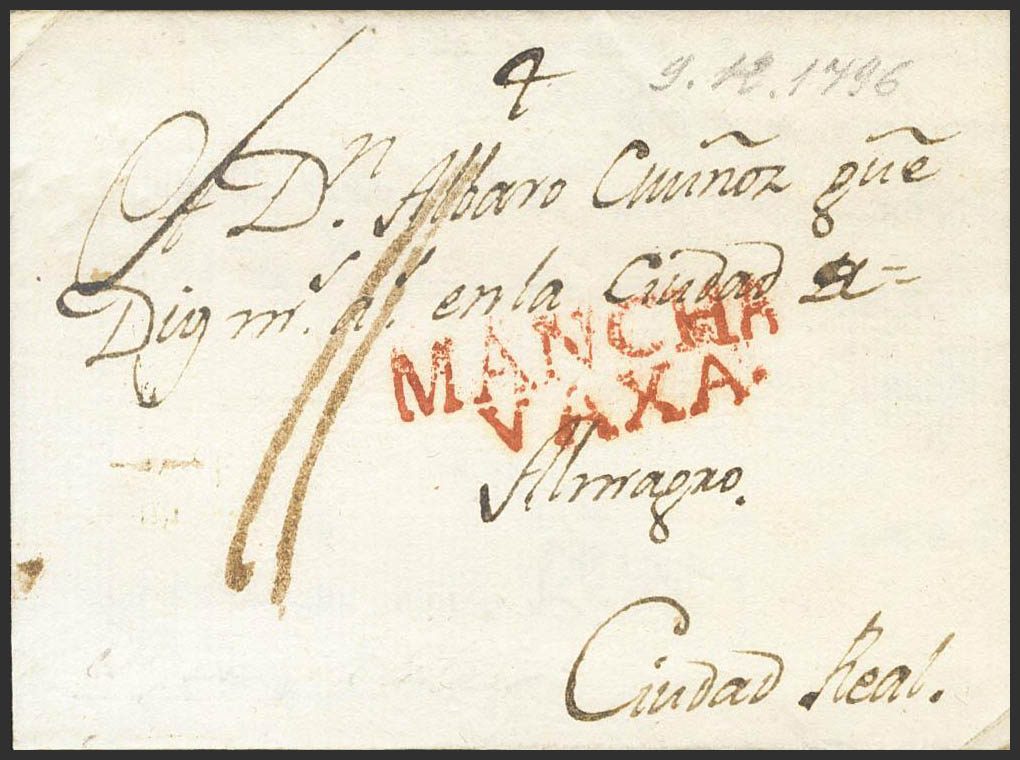 4
9.12.1796
A Dn. Albaro Muñoz gũe
Dios ms. as. en la Ciudad de=
MANCHA
VAXA.
Almagro.
Ciudad Real.